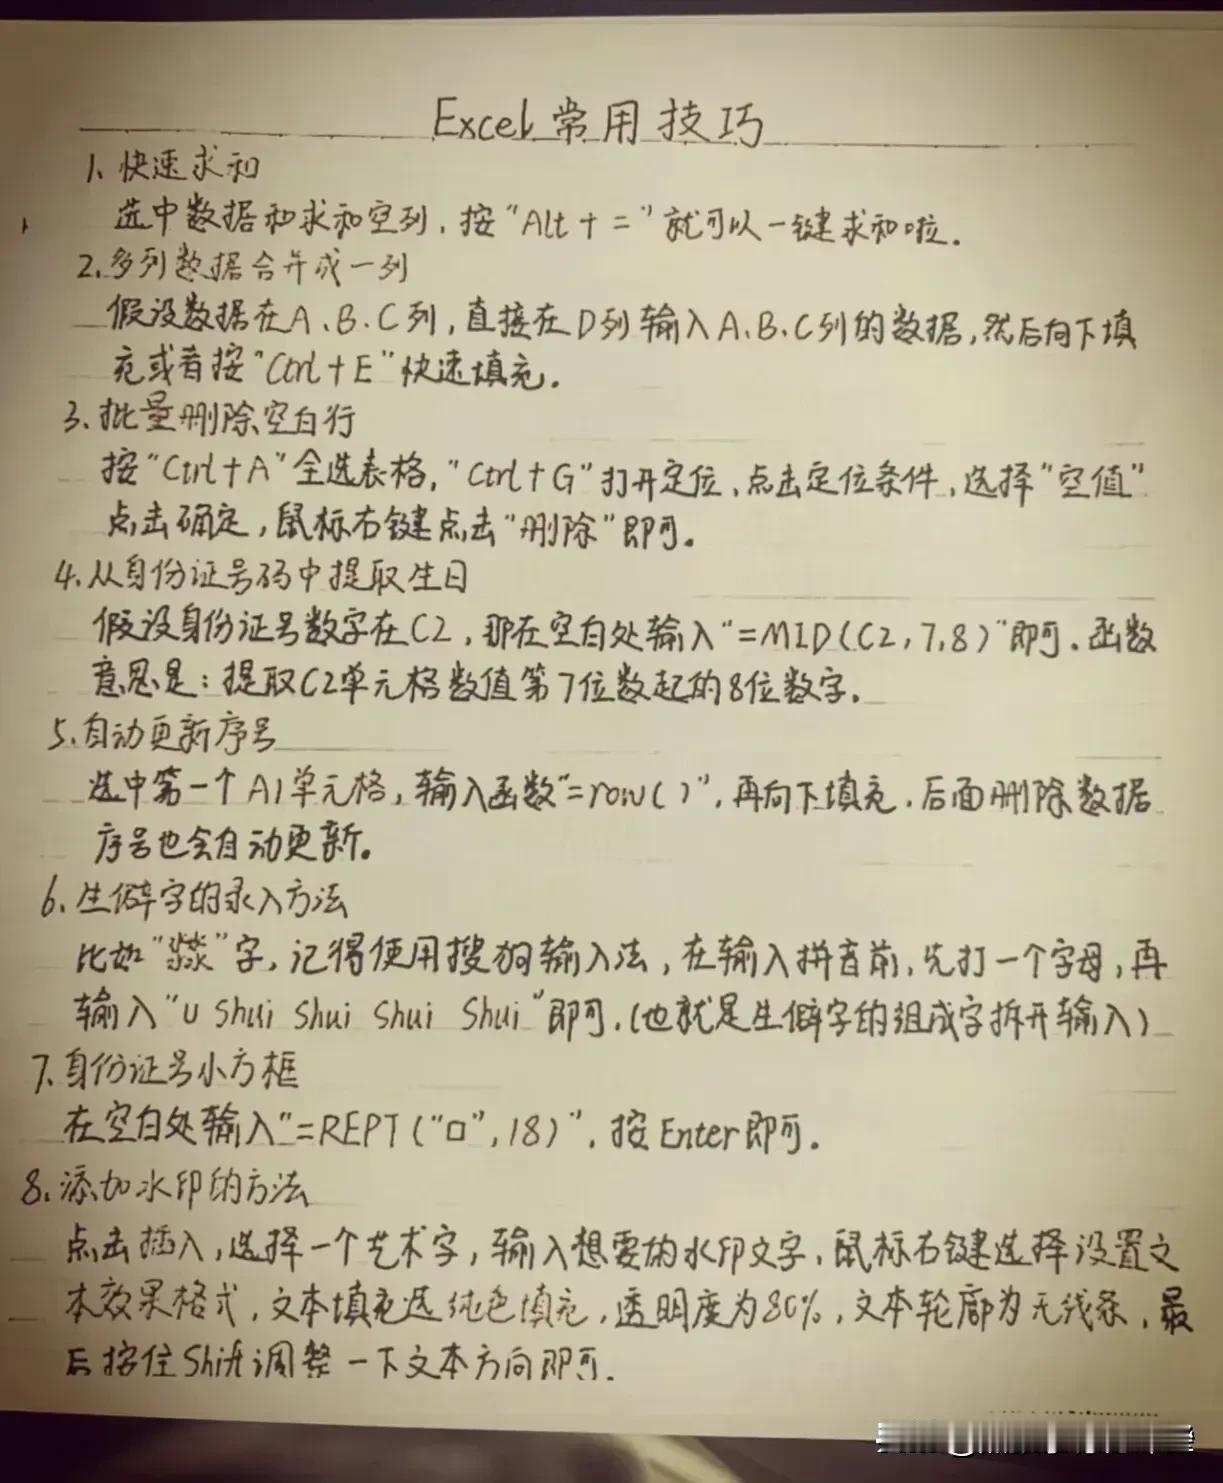 Excel常用技巧
1、快速求和
选中数据和求和空列，按"Alt+="就可以一键求和啦。
2、多列数据合并成一列
假设数据在A、B、C列，直接在D列输入A、B、C列的数据，然后向下填
充或者按"Ctrl+E"快速填充。
3、批量删除空白行
按"Ctrl+A"全选表格，"Ctrl+G"打开定位、点击定位条件，选择"空值"
点击确定，鼠标右键点击"删除"即可。
4、从身份证号码中提取生日
假设身份证号数字在C2，那在空白处输入"=MID(C2,7,8)"即可。函数
意思是：提取C2单元格数值第7位数起的8位数字。
5、自动更新序号
选中第一个A1单元格，输入函数"=row()"，再向下填充，后面删除数据
序号也会自动更新。
6、生僻字的录入方法
比如" "字，记得使用搜狗输入法，在输入拼音前，先打一个字母，再
输入"U Shui Shui Shui Shui"即可，(也就是生僻字的组成字拆开输入)
7、身份证号小方框
在空白处输入"=REPT("口",18)"，按Enter即可。
8、添加水印的方法
点击插入，选择一个艺术字，输入想要的水印文字，鼠标右键选择设置文
本效果格式，文本填充选纯色填充，透明度为80%，文本轮廓为无线条，最
后按住Shift调整一下文本方向即可。